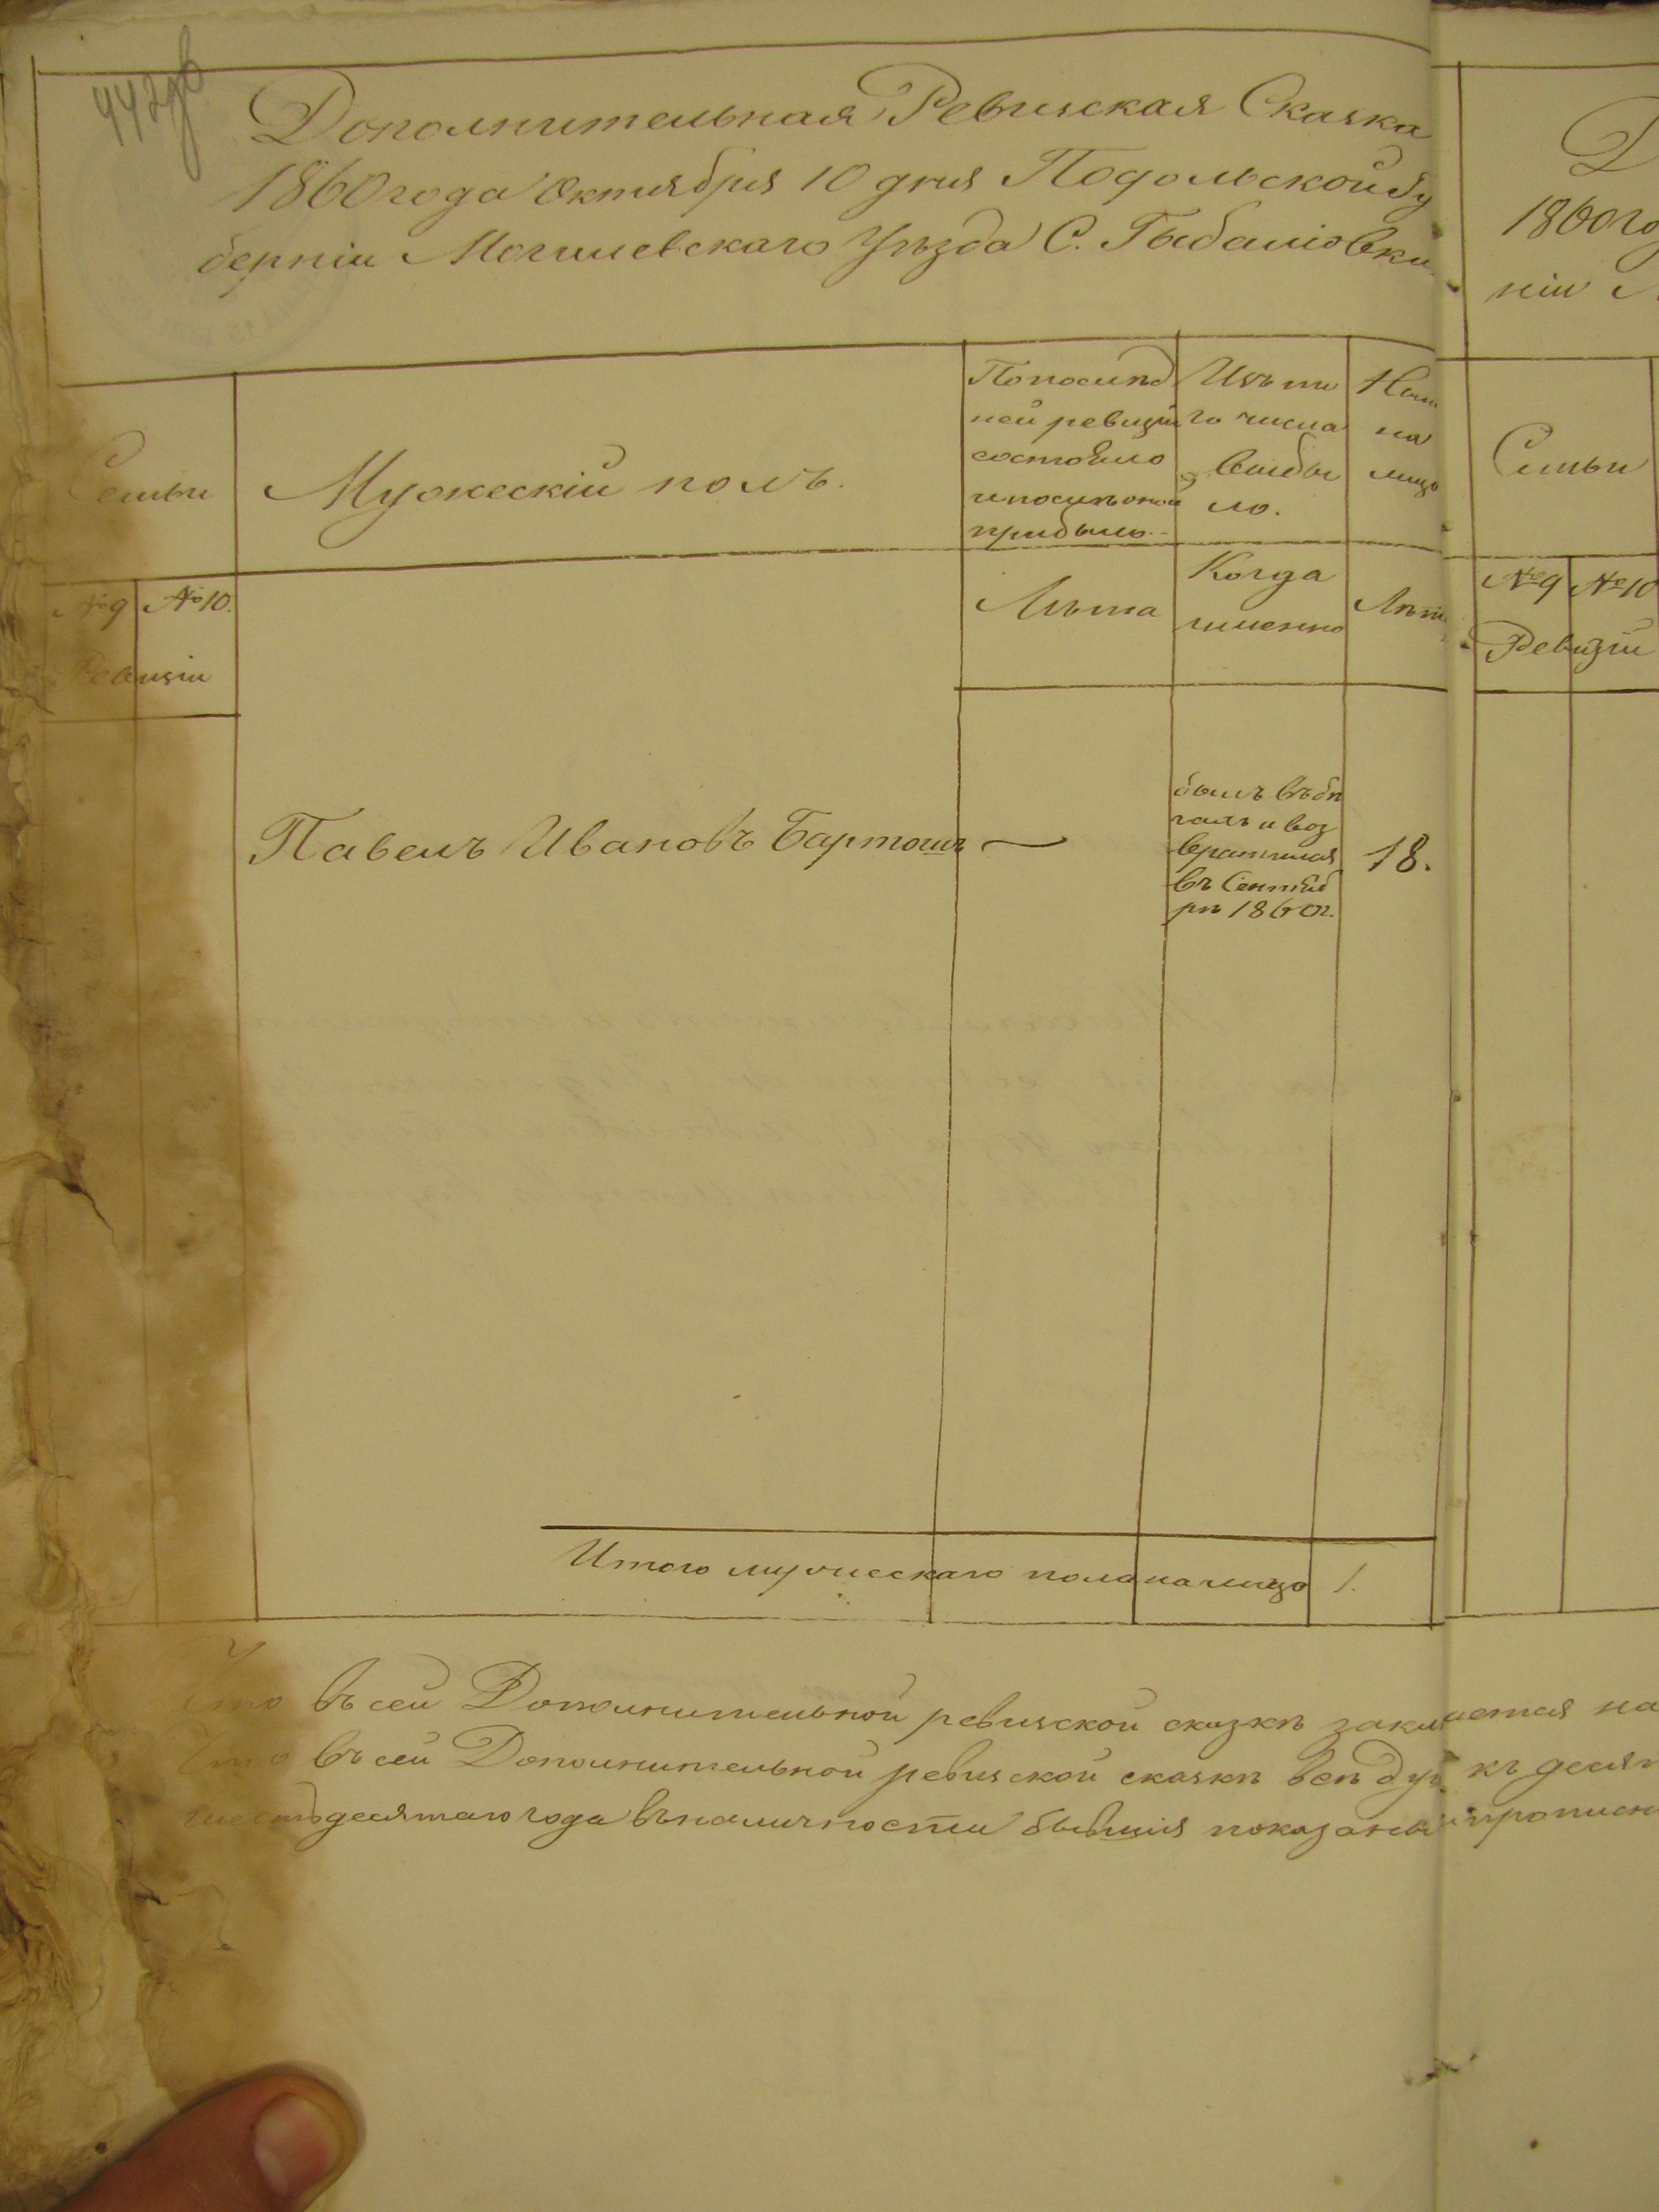 442об
Дополнительная Ревизская Сказка
1860 года Октября 10 дня Подольской Гу
берніи Могилевскаго Уѣзда С. Гыбаліовки
Семьи
Мужескій полъ.
По послѣд
ней ревизіи
состояло
и послѣ оной
прибыло.
Изъ то
го числа
выбы
ло.
Нали
на
лицо
№ 9 № 10.
Ревизіи
Лѣта
Когда
именно
Лѣта
Павелъ Ивановъ Бартошъ —
былъ въ бѣ
гахъ и воз
вратился
въ Сентяб
рѣ 1860 г.
18.
Итого мужескаго пола на лицо 1.
Что въ сей Дополнительной ревизской сказкѣ
Что въ сей Дополнительной ревизской сказкѣ всѣ
шестьдесятаго года въ наличности бывшія показаны
Д
1860 го
ніи М
Семьи
№ 9 № 10
Ревизіи
ается на
къ десят
прописн